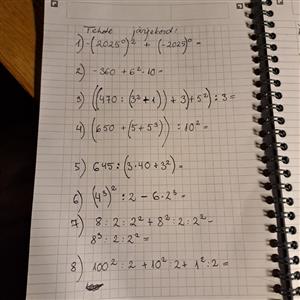 Tehete järjekord:
1) -(2025⁰)² + (-2025)⁰ =
2) -360 + 6²·10 =
3) ((470 : (3²+1)) + 3)+5²) : 3 =
4) (650 + (5+5³)) : 10² =
5) 645 : (3·40+3²) =
6) (4³)² : 2 - 6·2³ =
7) 8 : 2 : 2² + 8² : 2 : 2² -
8³ : 2 : 2² =
8) 100² : 2 + 10² : 2 + 1² : 2 =